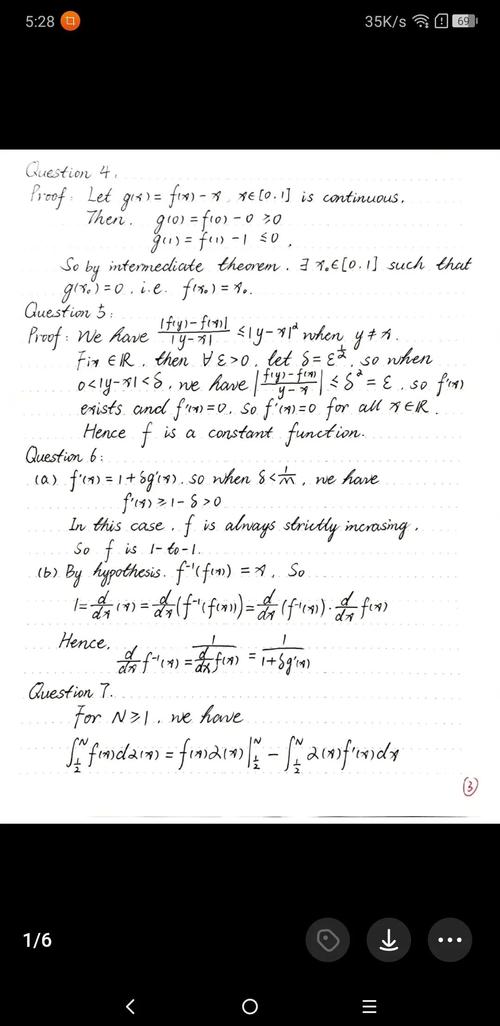 5:28
35K/s
69
Question 4.
Proof: Let g(x) = f(x) - x, x∈[0.1] is continuous.
Then. g(0) = f(0) - 0 ≥0
g(1) = f(1) - 1 ≤0.
So by intermediate theorem. ∃ x₀∈[0.1] such that
g(x₀) = 0. i.e. f(x₀) = x₀.
Question 5:
Proof: We have |f(y)-f(x)|/|y-x| ≤ |y-x|² when y≠x.
Fix ∈ℝ, then ∀ε>0, let δ=ε^½, so when
0<|y-x|<δ, we have |f(y)-f(x)/y-x| ≤ δ² = ε, so f'(x)
exists and f'(x)=0. So f'(x)=0 for all x∈ℝ.
Hence f is a constant function.
Question 6:
(a) f'(x) = 1+δg'(x). so when δ<1/m, we have
f'(x) ≥ 1-δ >0
In this case, f is always strictly incrasing.
So f is 1-to-1.
(b) By hypothesis. f⁻¹(f(x)) = x, So
1 = d/dx (x) = d/dx (f⁻¹(f(x))) = d/dx (f⁻¹(x)) · d/dx f(x)
Hence, d/dx f⁻¹(x) = 1/(d/dx f(x)) = 1/(1+δg'(x))
Question 7.
For N≥1, we have
∫_½^N f(x)d2(x) = f(x)2(x)|_½^N - ∫_½^N 2(x)f'(x)dx
③
1/6